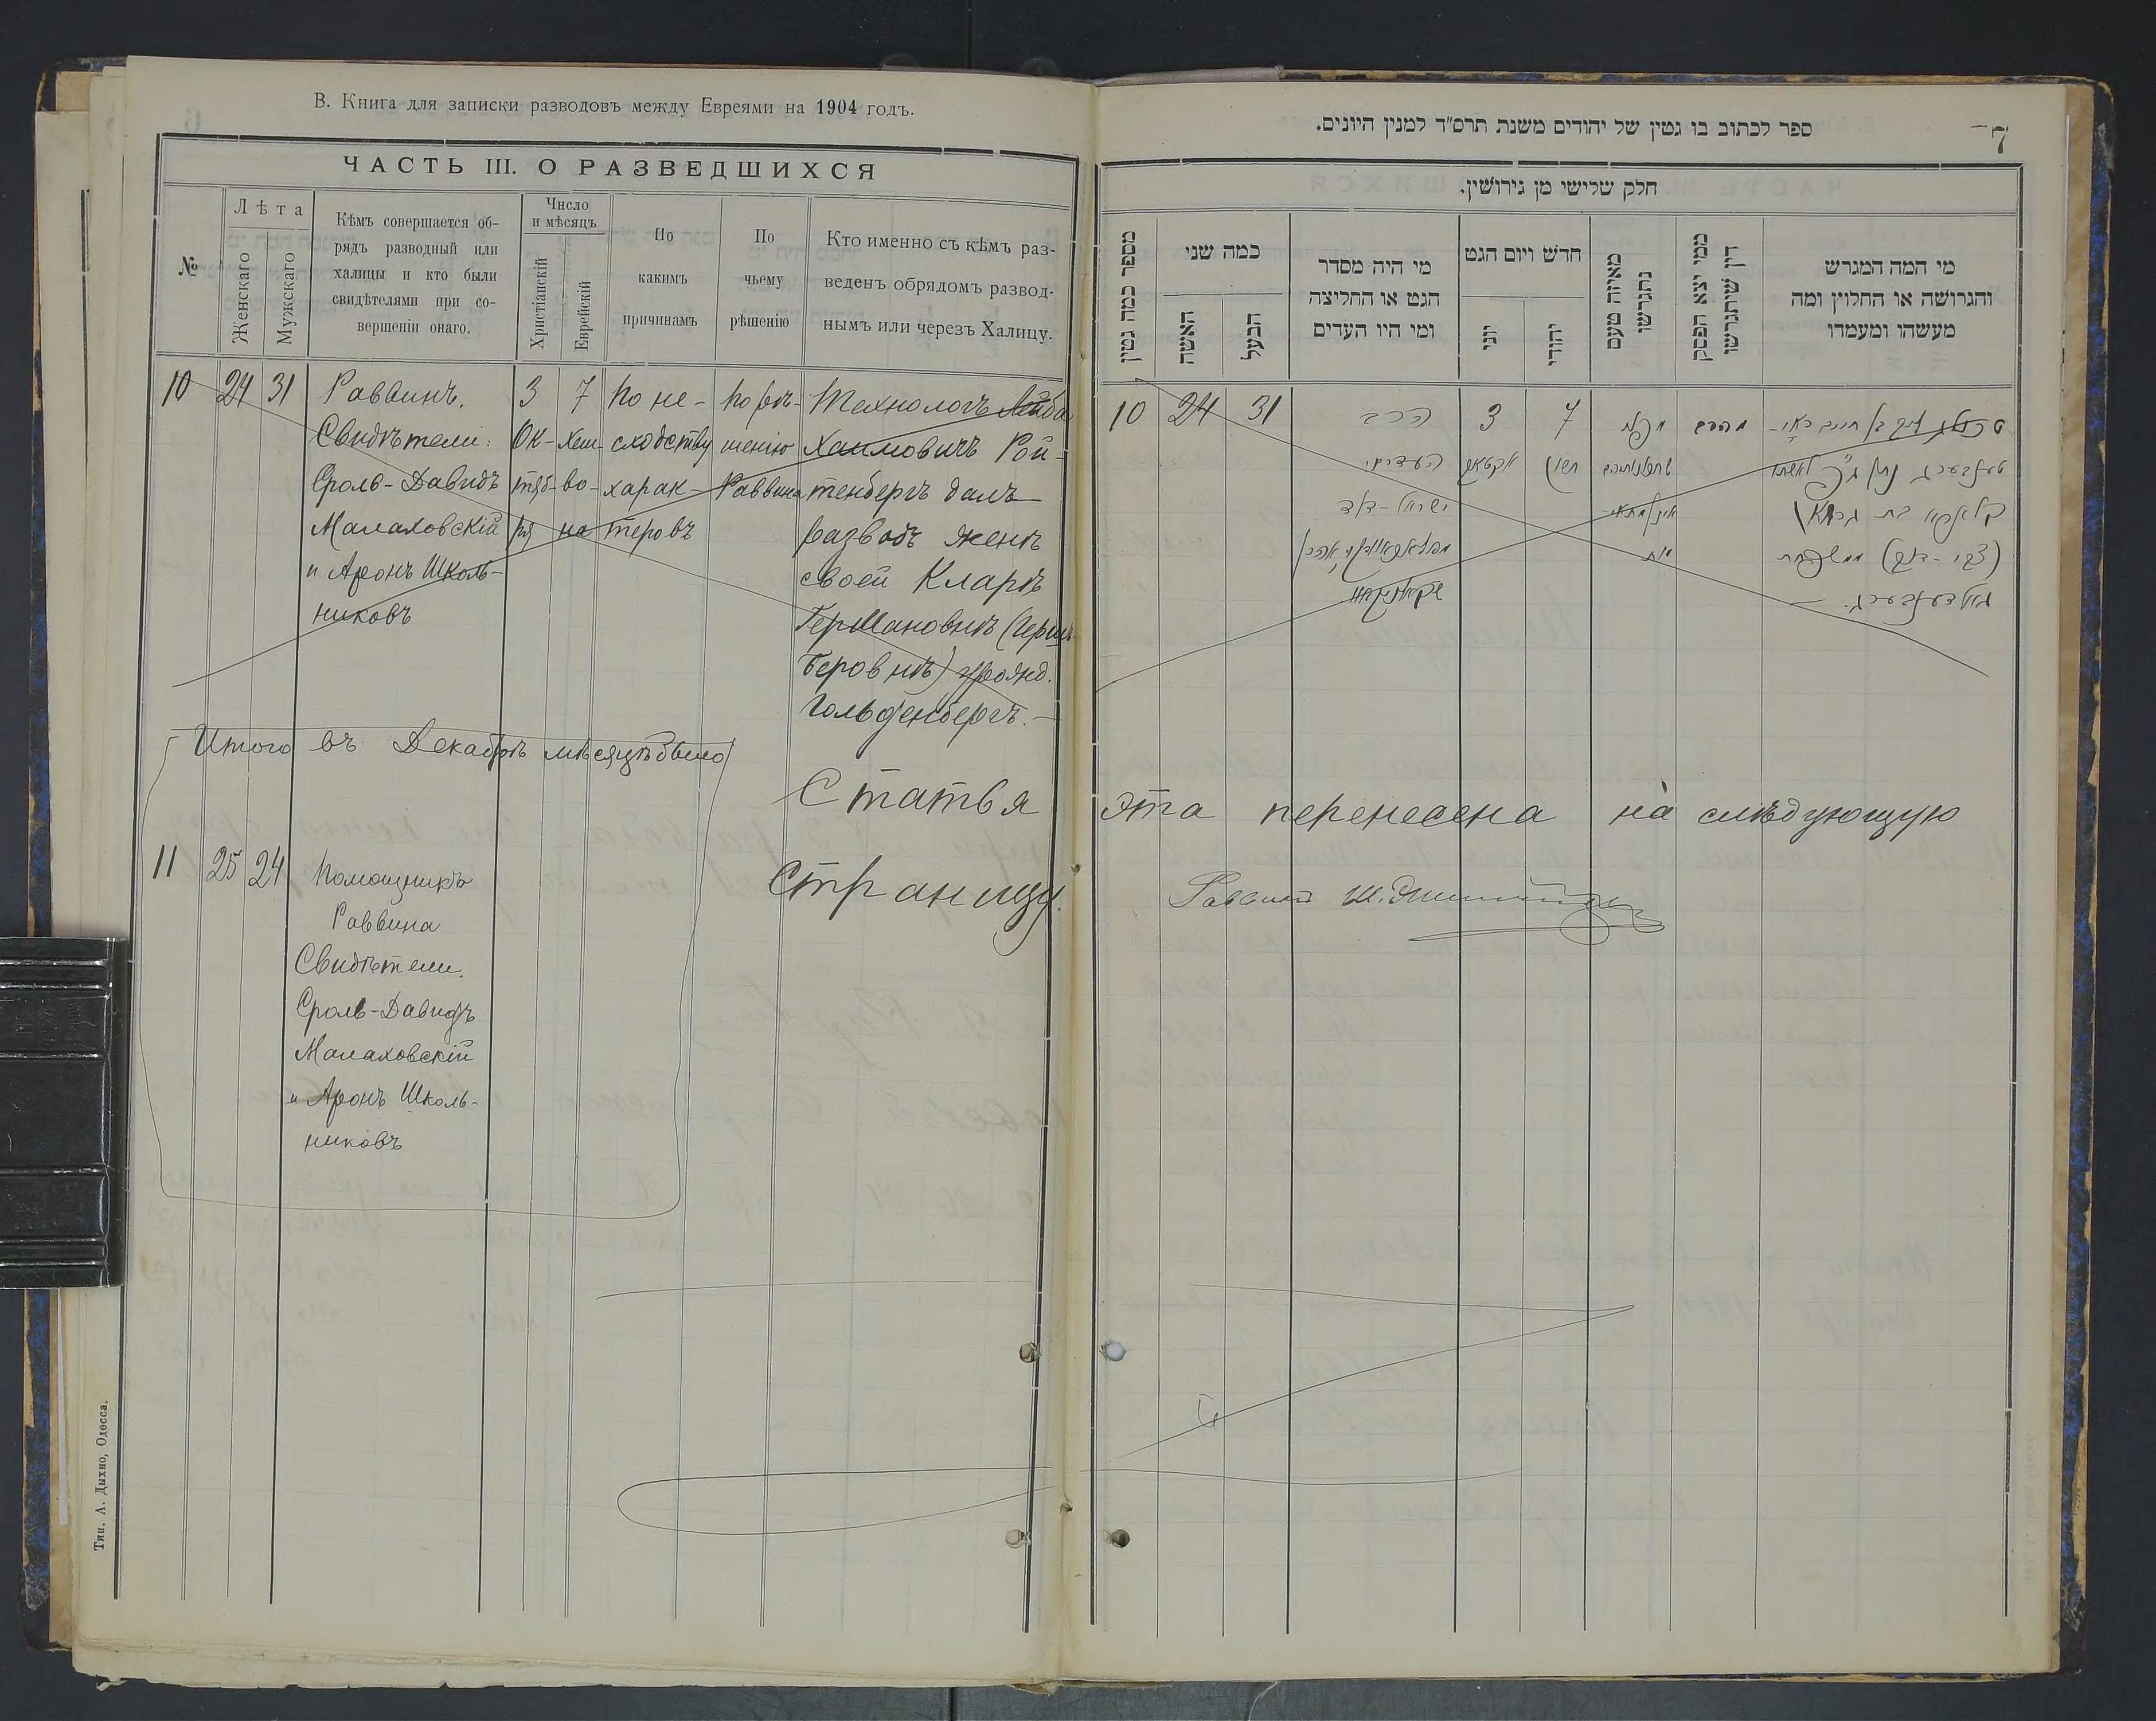 В. Книга для записки разводовъ между Евреями на 1904 годъ.
ЧАСТЬ III. О РАЗВЕДШИХСЯ
№
Лѣта
Женскаго
Мужскаго
Кѣмъ совершается об-
рядъ разводный или
халицы и кто были
свидѣтелями при со-
вершеніи онаго.
Число
и мѣсяцъ
Христіанскій
Еврейскій
По
какимъ
причинамъ
По
чьему
рѣшенію
Кто именно съ кѣмъ раз-
веденъ обрядомъ развод-
нымъ или черезъ Халицу.
10
24
31
Раввинъ.
Свидѣтели:
Сроль-Давидъ
Малаховскій
и Аронъ Школь-
никовъ
3
Ок-
тяб-
ря
7
Хеш-
во-
на
По не-
сходству
харак-
теровъ
По рѣ-
шенію
Раввина
Технологъ Лейба
Хаимовичъ Рой-
тенбергъ далъ
разводъ женѣ
своей Кларѣ
Германовнѣ (Герш-
Беровнѣ) урожд.
Гольденбергъ.
Итого въ Декабрѣ мѣсяцѣ было
11
25
24
Помощникъ
Раввина
Свидѣтели.
Сроль-Давидъ
Малаховскій
и Аронъ Школь-
никовъ
Статья
страницу.
Тип. А. Дыхно, Одесса.
ספר לכתוב בו גטין של יהודים משנת תרס״ד למנין היונים.
7
חלק שלישי מן גירושין.
מספר כמה גטין
כמה שני
האשה
הבעל
מי היה מסדר
הגט או החליצה
ומי היו העדים
חדש ויום הגט
יוני
יהודי
מאיזה טעם
נתגרשו
ממי יצא הפסק
דין שיתגרשו
מי המה המגרש
והגרושה או החלוץ ומה
מעשהו ומעמדו
10
24
31
הרב
העדים:
ישראל-דוד
3
7
חשון
מהרב
Эта перенесена на слѣдующую
Раввинъ